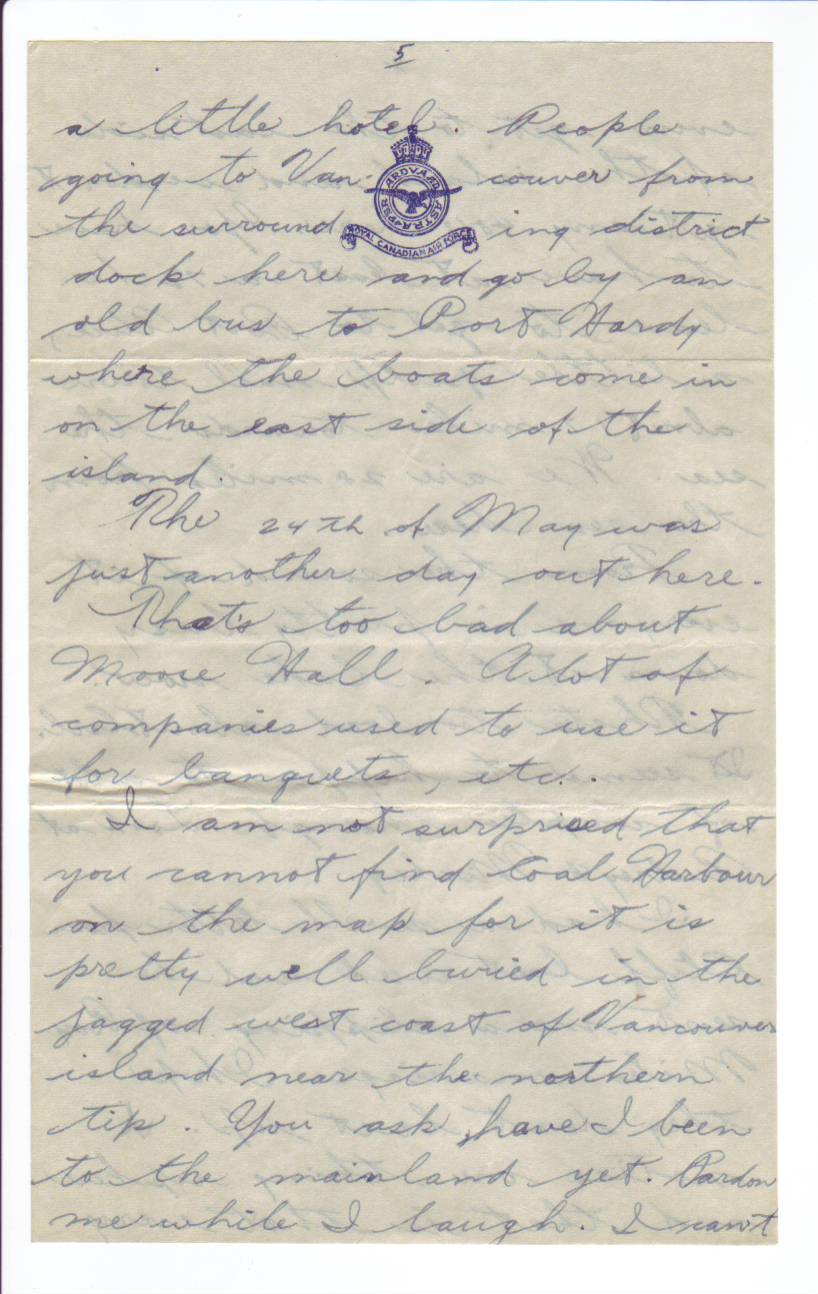 5
a little hotel. People
going to Van- couver from
the surround ing district
PER ARDVA AD ASTRA
ROYAL CANADIAN AIR FORCE
dock here and go by an
old bus to Port Hardy
where the boats come in
on the east side of the
island.
The 24th of May was
just another day out here.
That's too bad about
Moose Hall. A lot of
companies used to use it
for banquets, etc..
I am not surprised that
you cannot find Coal Harbour
on the map for it is
pretty well buried in the
jagged west coast of Vancouver
island near the northern
tip. You ask, have I been
to the mainland yet. Pardon
me while I laugh. I can't